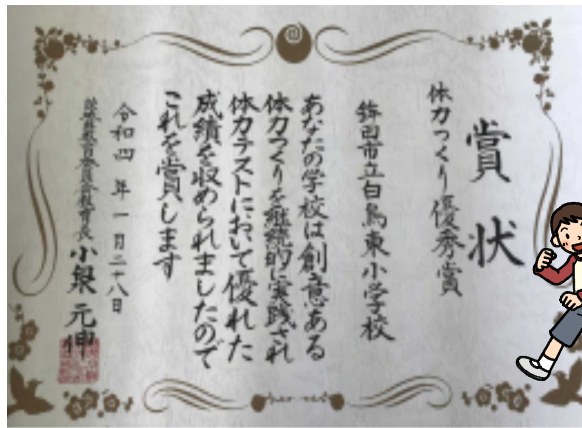 賞状
体力つくり優秀賞
鉾田市立白鳥東小学校
あなたの学校は創意ある
体力つくりを継続的に実践され
体力テストにおいて優れた
成績を収められましたので
これを賞します
令和四年一月二十八日
茨城県教育委員会教育長 小泉元伸